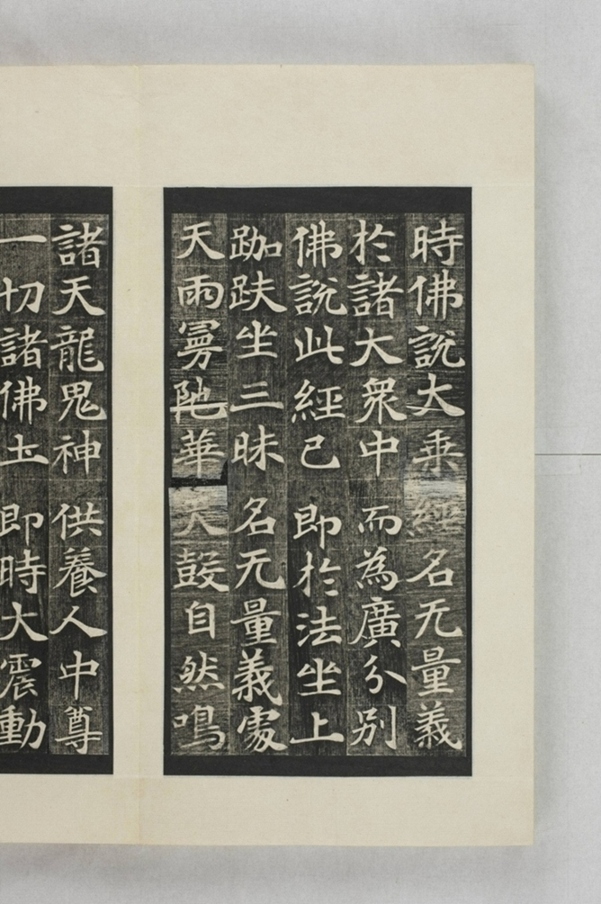 時佛説大乘 經名无量義
於諸大衆中 而為廣分別
佛説此經已 即於法坐上
跏趺坐三昧 名无量義處
天雨曼陁華 天鼓自然鳴
諸天龍鬼神 供養人中尊
一切諸佛土 即時大震動